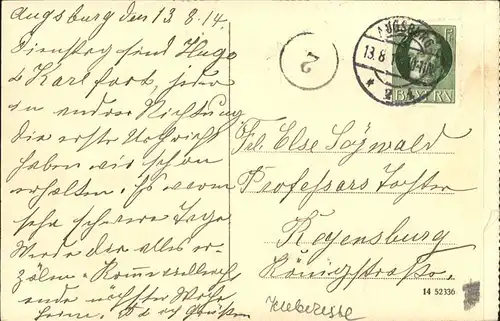 Augsburg den 13 8. 14.
Dienstag sind Hugo
& Karl fort, jeder
in andrer Richtung
die erste Nachricht
haben wir schon
erhalten. Es waren
sehr schwere Tage.
Werde dir alles er-
zälen. Komme vielleicht
ende nächster Woche
heim.
Grüßen
2
AUGSBURG
13.8
BAYERN
Frl. Else
Professors Tochter
Regensburg
Königstraße.
14 52336